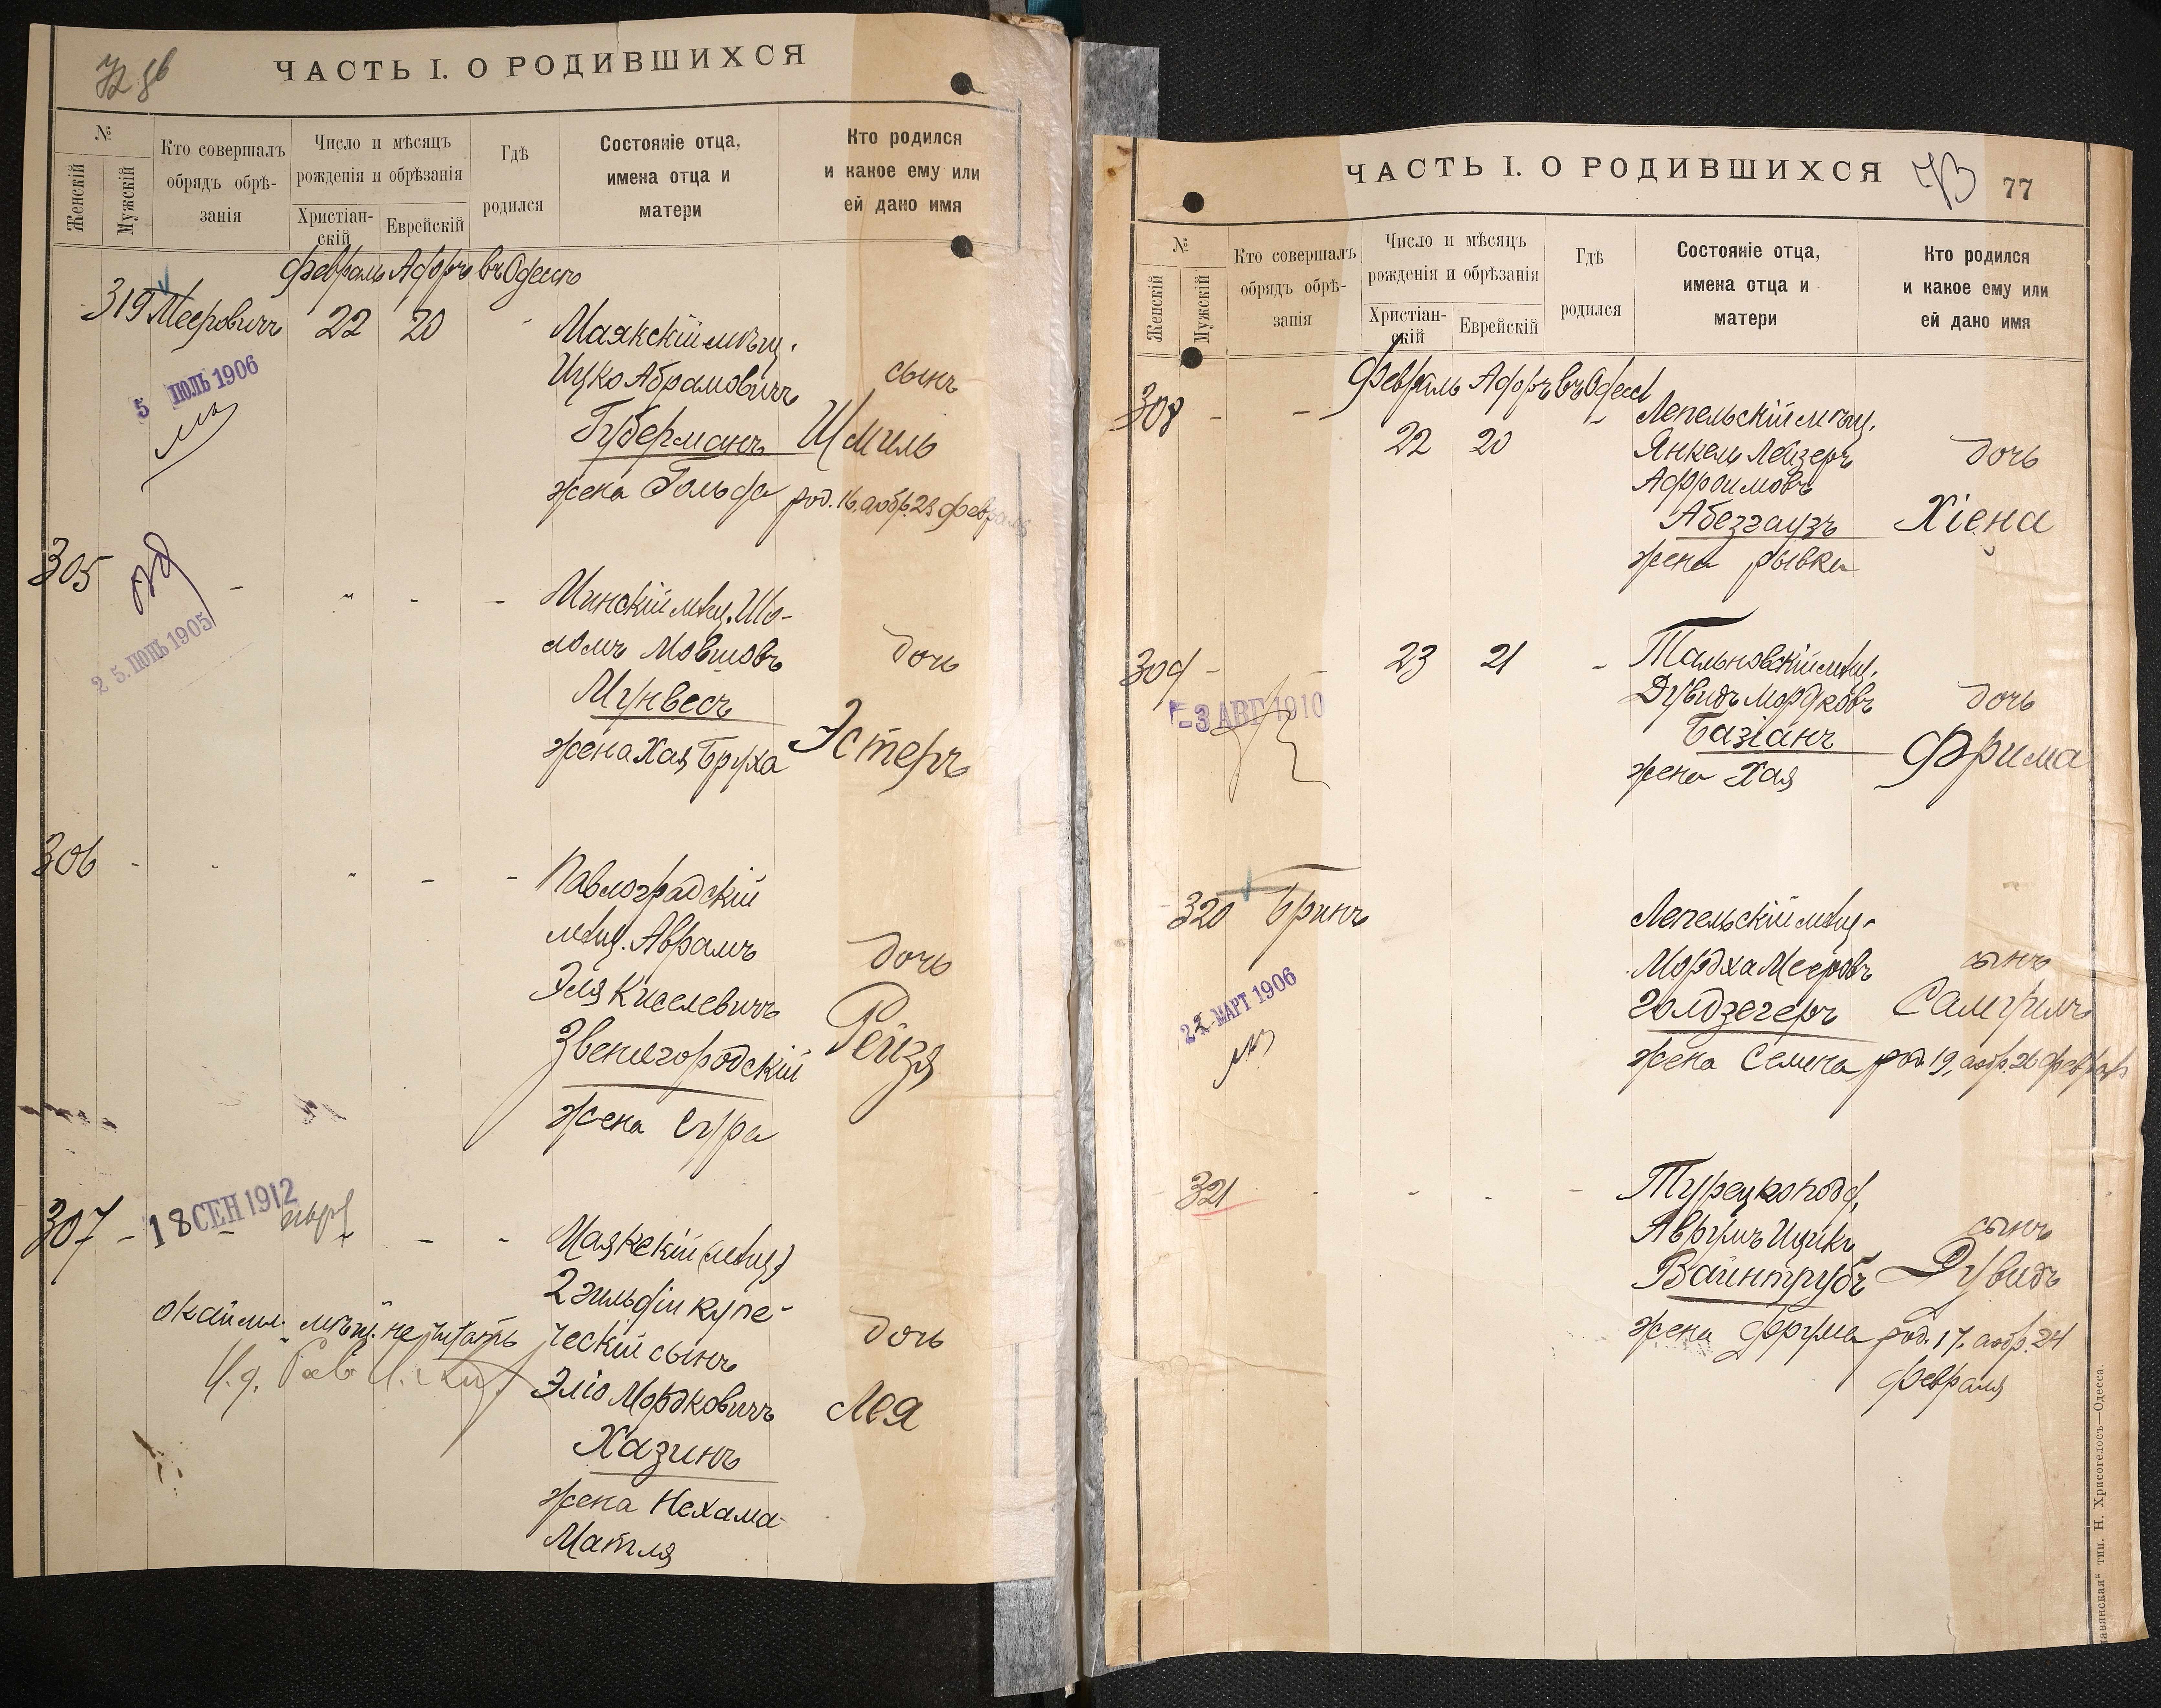 ЧАСТЬ I. О РОДИВШИХСЯ
№
Женскій
Мужскій
Кто совершалъ
обрядъ обрѣ-
занія
Число и мѣсяцъ
рожденія и обрѣзанія
Христіан-
скій
Еврейскій
Гдѣ
родился
Состояніе отца,
имена отца и
матери
Кто родился
и какое ему или
ей дано имя
Февраль Адоръ въ Одессѣ
319 Мееровичъ 22 20 Маякскій мѣщ.
5 ІЮЛЬ 1906
Ицко Абрамовичъ сынъ
Губерманъ Шмиль
жена Гольда род. 16, а обр. 23 февраля
305 - " - - Минскій мѣщ. Шо-
25. ІЮНЬ 1905
ломъ Мовшовъ дочь
Мунвесъ
жена Хая Бруха Эстеръ
306 - - " - - Павлоградскій
мѣщ. Аврамъ дочь
Эля Киселевичъ
Звенигородскій Рейзя
жена Сура
307 - 18 СЕН 1912 - - Маякскій (мѣщ.)
2 гильдіи купе-
ческій сынъ дочь
мѣщ. не читать
Эліо Мордковичъ Лея
Хазинъ
жена Нехама
Матля
ЧАСТЬ I. О РОДИВШИХСЯ 73 77
№
Женскій
Мужскій
Кто совершалъ
обрядъ обрѣ-
занія
Число и мѣсяцъ
рожденія и обрѣзанія
Христіан-
скій
Еврейскій
Гдѣ
родился
Состояніе отца,
имена отца и
матери
Кто родился
и какое ему или
ей дано имя
Февраль Адоръ въ Одессѣ
308 - - - Лепельскій мѣщ.
22 20 Янкель Лейзеръ дочь
Афроимовъ
Абезгаузъ Хіена
жена Рывка
309 - - 23 21 - Тальновскій мѣщ.
-3 АВГ 1910
Дувидъ Мордковъ дочь
Базіанъ Фрима
жена Хая
320 Бринъ Лепельскій мѣщ.
Мордха Мееровъ сынъ
22 МАРТ 1906
Голдзегеръ Самуилъ
жена род. 19, а обр. 26 февраля
321 - - - - Турецкоподд.
Аврумъ Ицикъ сынъ
Вайнтрубъ Дувидъ
жена Фрума род. 17. а обр. 24
февраля
тип. Н. Хрисогелосъ—Одесса.